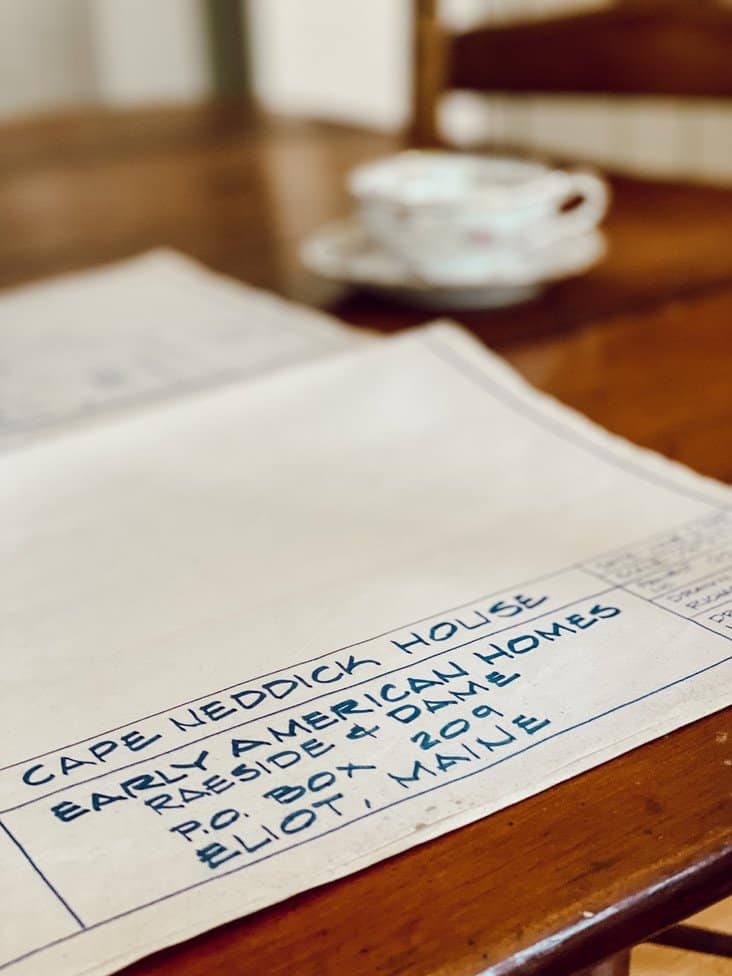 CAPE NEDDICK HOUSE
EARLY AMERICAN HOMES
RAESIDE & DAME
P.O. BOX 209
ELIOT, MAINE